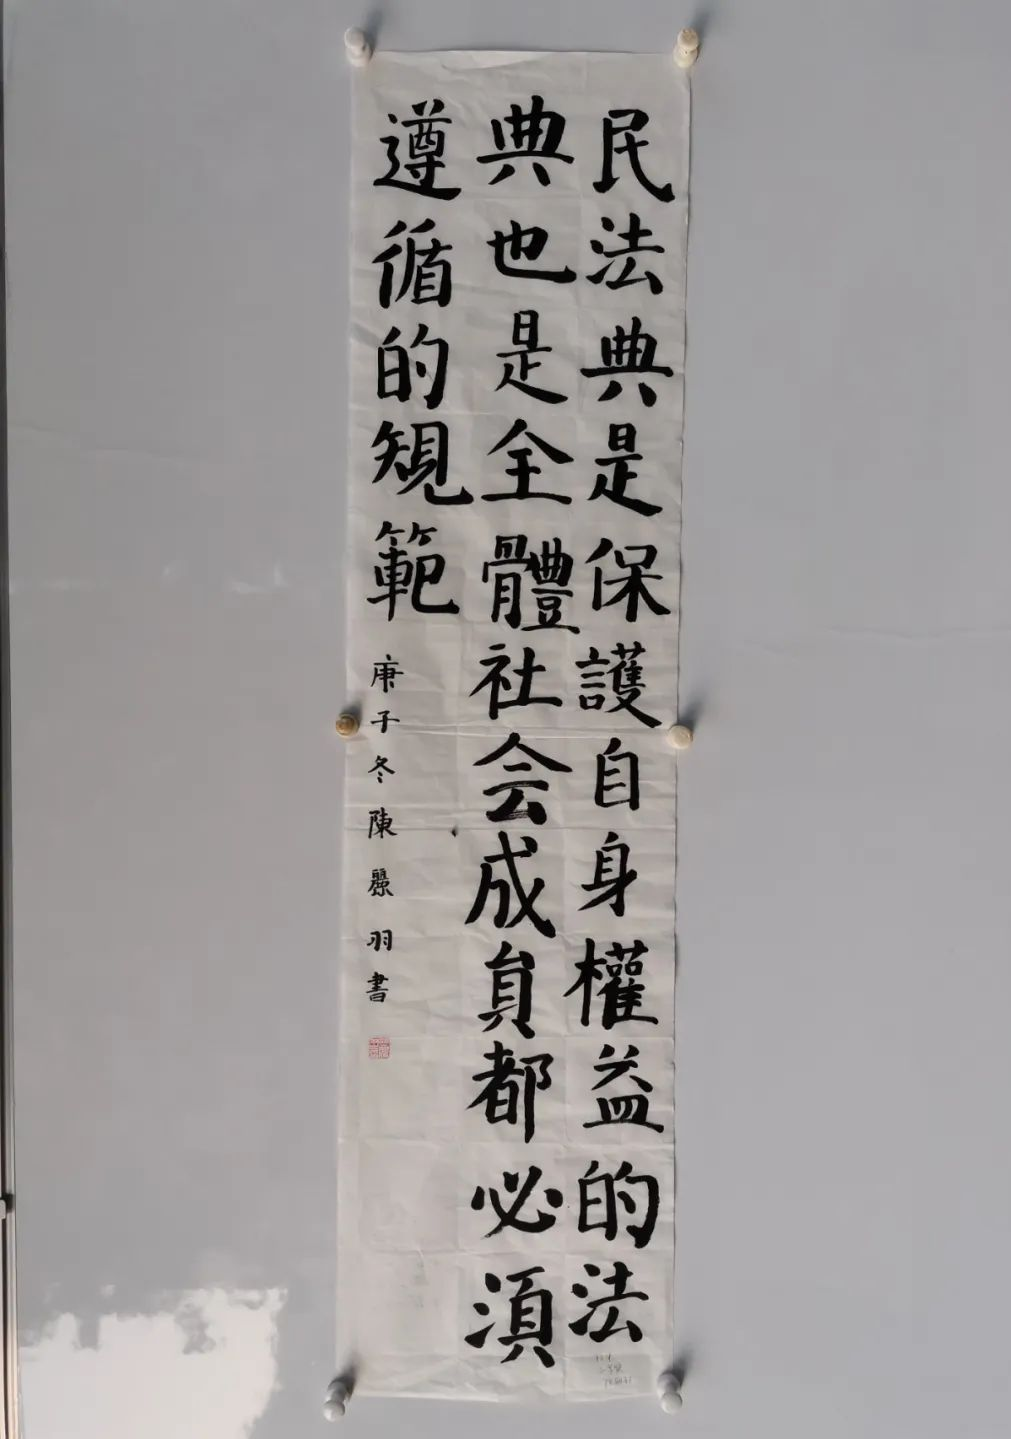 民法典是保護自身權益的法
典也是全體社会成員都必湏
遵循的規範
庚子冬陳麗羽書